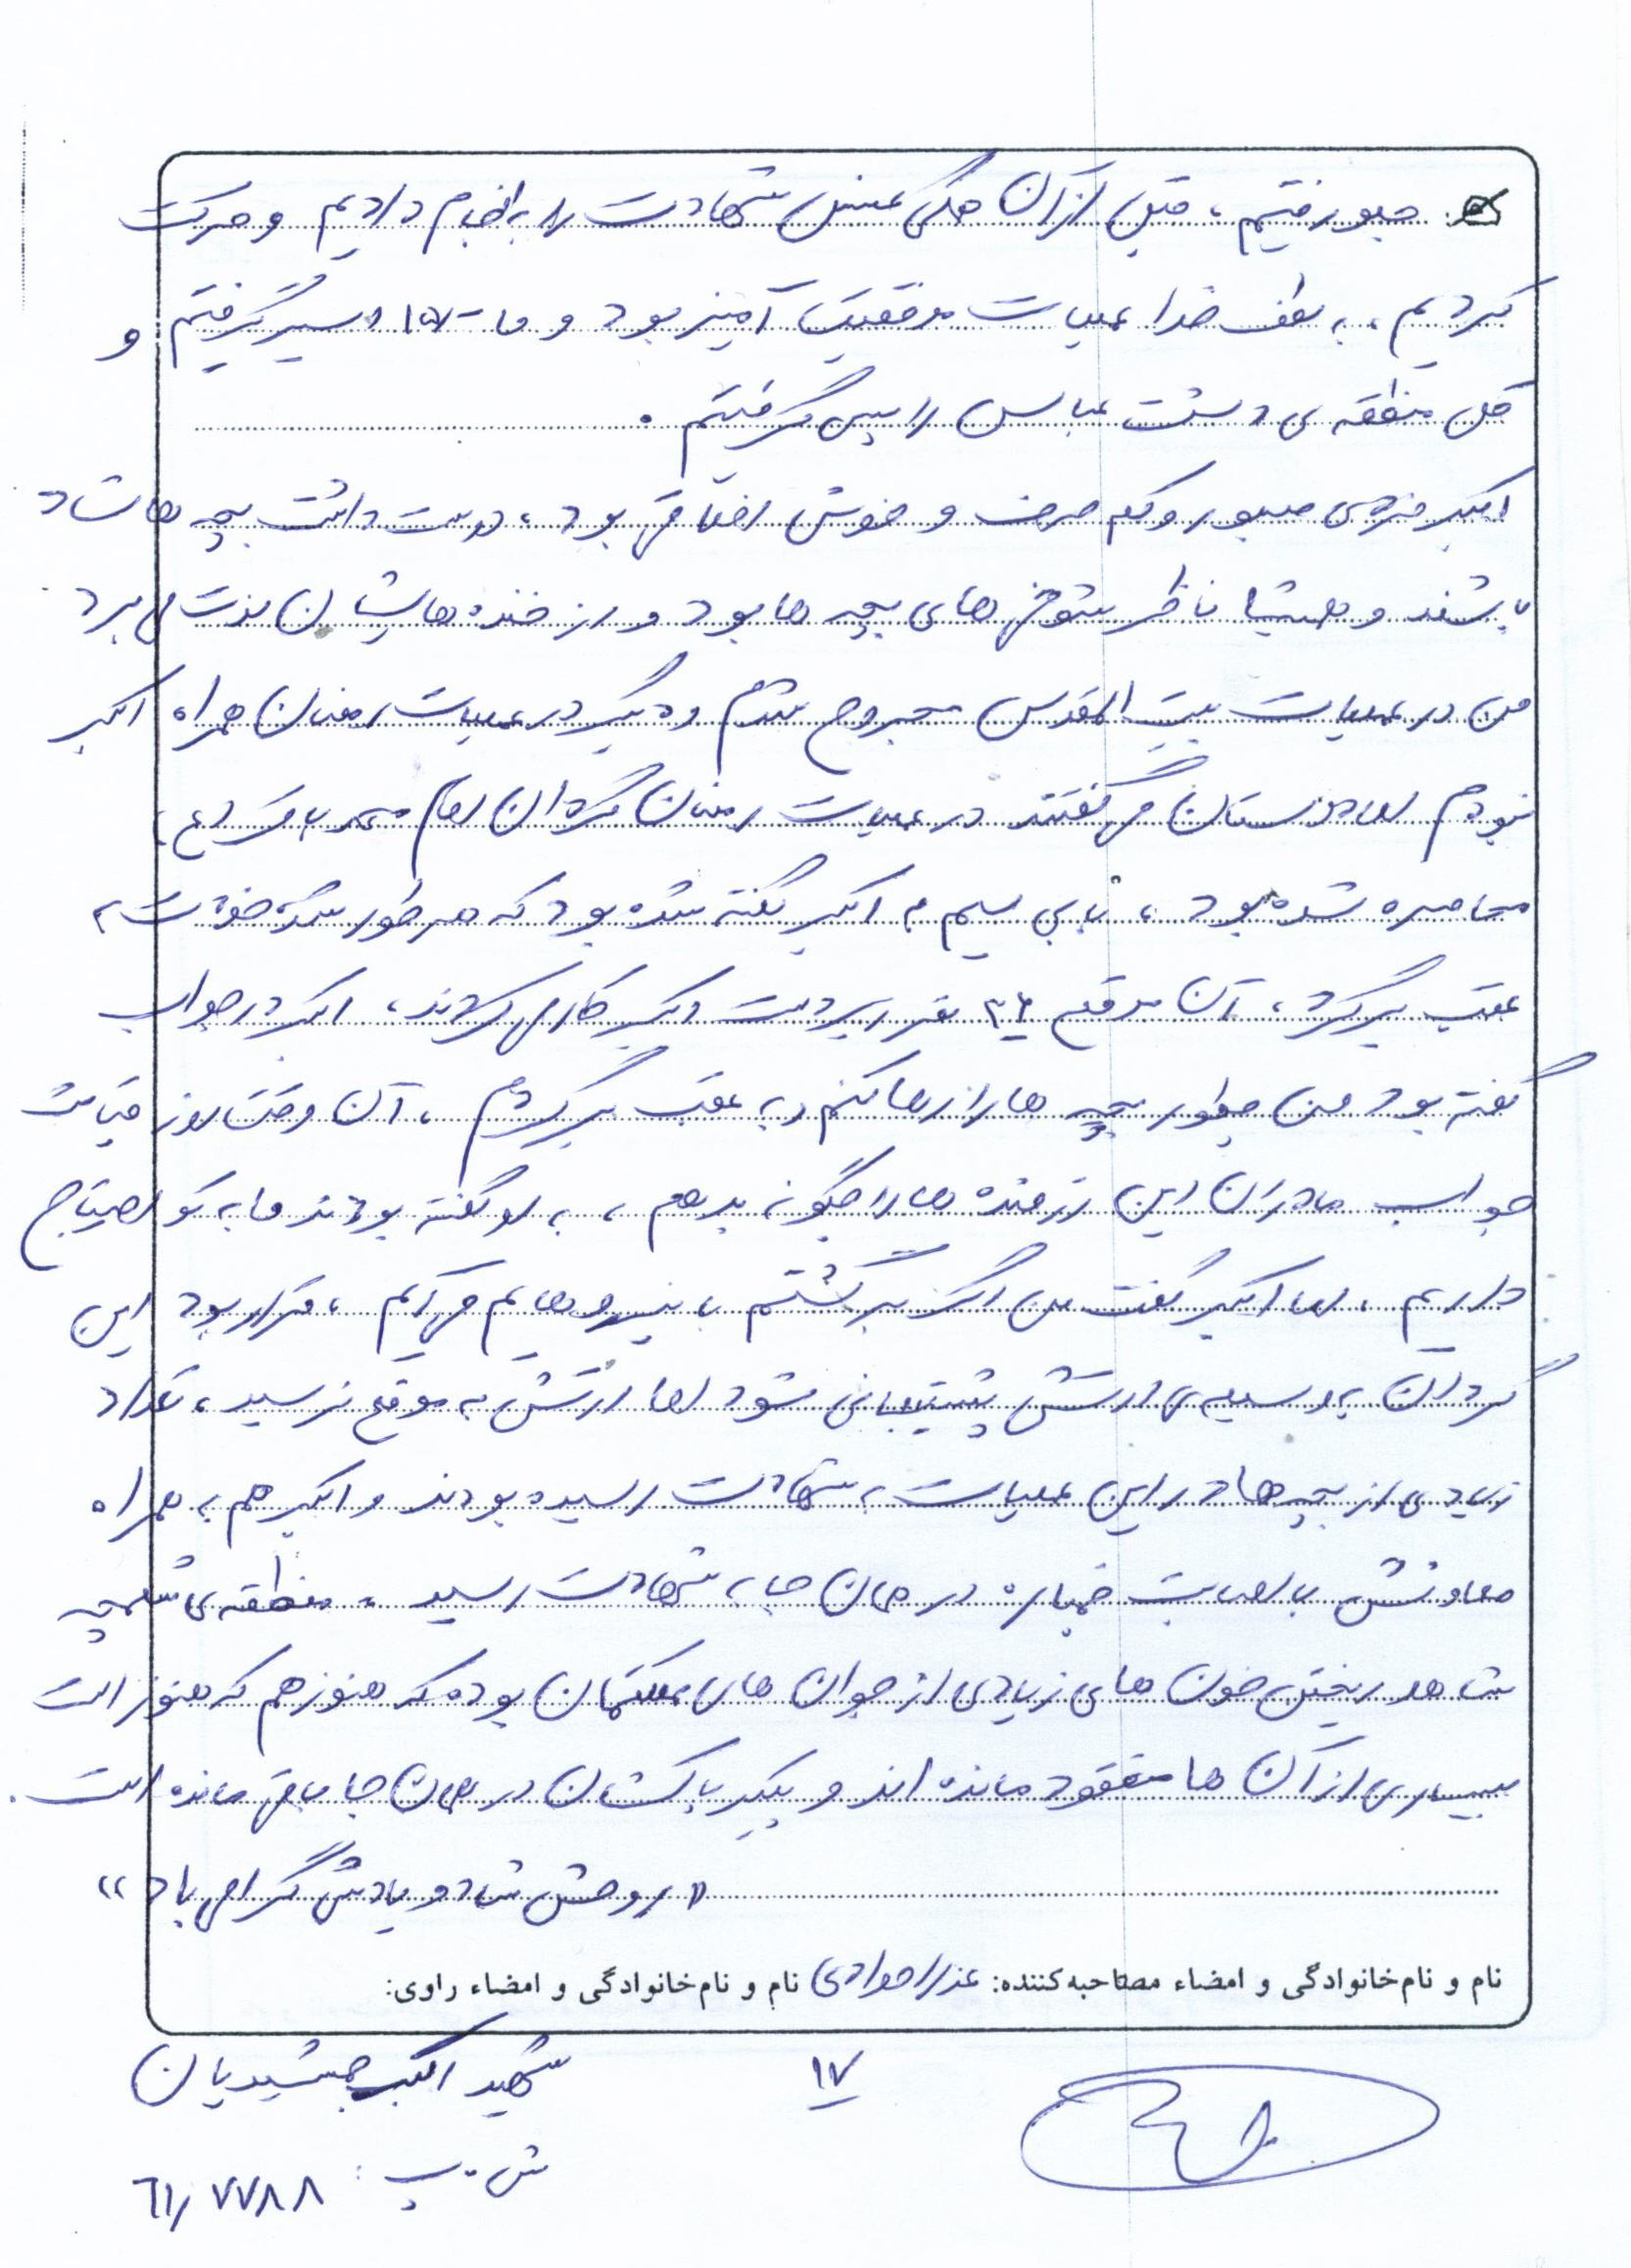 جلو رفتیم، قبل از آن همگی غسل شهادت را به انجام دادیم و حرکت
کردیم، به لطف خدا عملیات موفقیت آمیز بود و ما ۱۵۰ اسیر گرفتیم و
کل منطقه ی دشت عباس را پس گرفتیم.
اکبر فردی صبور و کم حرف و خوش اخلاقی بود، دوست داشت بچه ها شاد
باشند و همیشه ناظر شوخی های بچه ها بود و از خنده هایشان لذت می برد
من در عملیات بیت المقدس مجروح شدم و دیگر در عملیات رمضان همراه اکبر
نبودم اما دوستان می گفتند در عملیات رمضان گردان امام محمد باقر (ع)
محاصره شده بود، با بی سیم به اکبر گفته شده بود که هر طور شده خودت به
عقب برگرد، آن موقع نفر زیر دست اکبر کار می کردند، اکبر در جواب
گفته بود من چطور بچه ها را رها کنم و به عقب برگردم، آن وقت روز قیامت
جواب مادران این رزمنده ها را چگونه بدهم، به او گفته بودند ما به تو احتیاج
داریم، اما اکبر گفت من اگر برگشتم با نیروهایم می آیم، قرار بود این
گردان به وسیله ی ارتش پشتیبانی شود اما ارتش به موقع نرسید، تعداد
زیادی از بچه ها در این عملیات به شهادت رسیده بودند و اکبر هم به همراه
معاونش با اصابت خمپاره در همان جا به شهادت رسید. منطقه ی شلمچه
شاهد ریختن خون های زیادی از جوان های مملکتمان بوده که هنوز هم که هنوز است
بسیاری از آن ها مفقود مانده اند و پیکر پاکشان در همان جا باقی مانده است.
«روحش شاد و یادش گرامی باد»
نام و نام خانوادگی و امضاء مصاحبه کننده: عذرا جوادی نام و نام خانوادگی و امضاء راوی:
۱۷
شهید اکبر جمشیدیان
ش. پ: ۶۱/۷۷۸۸